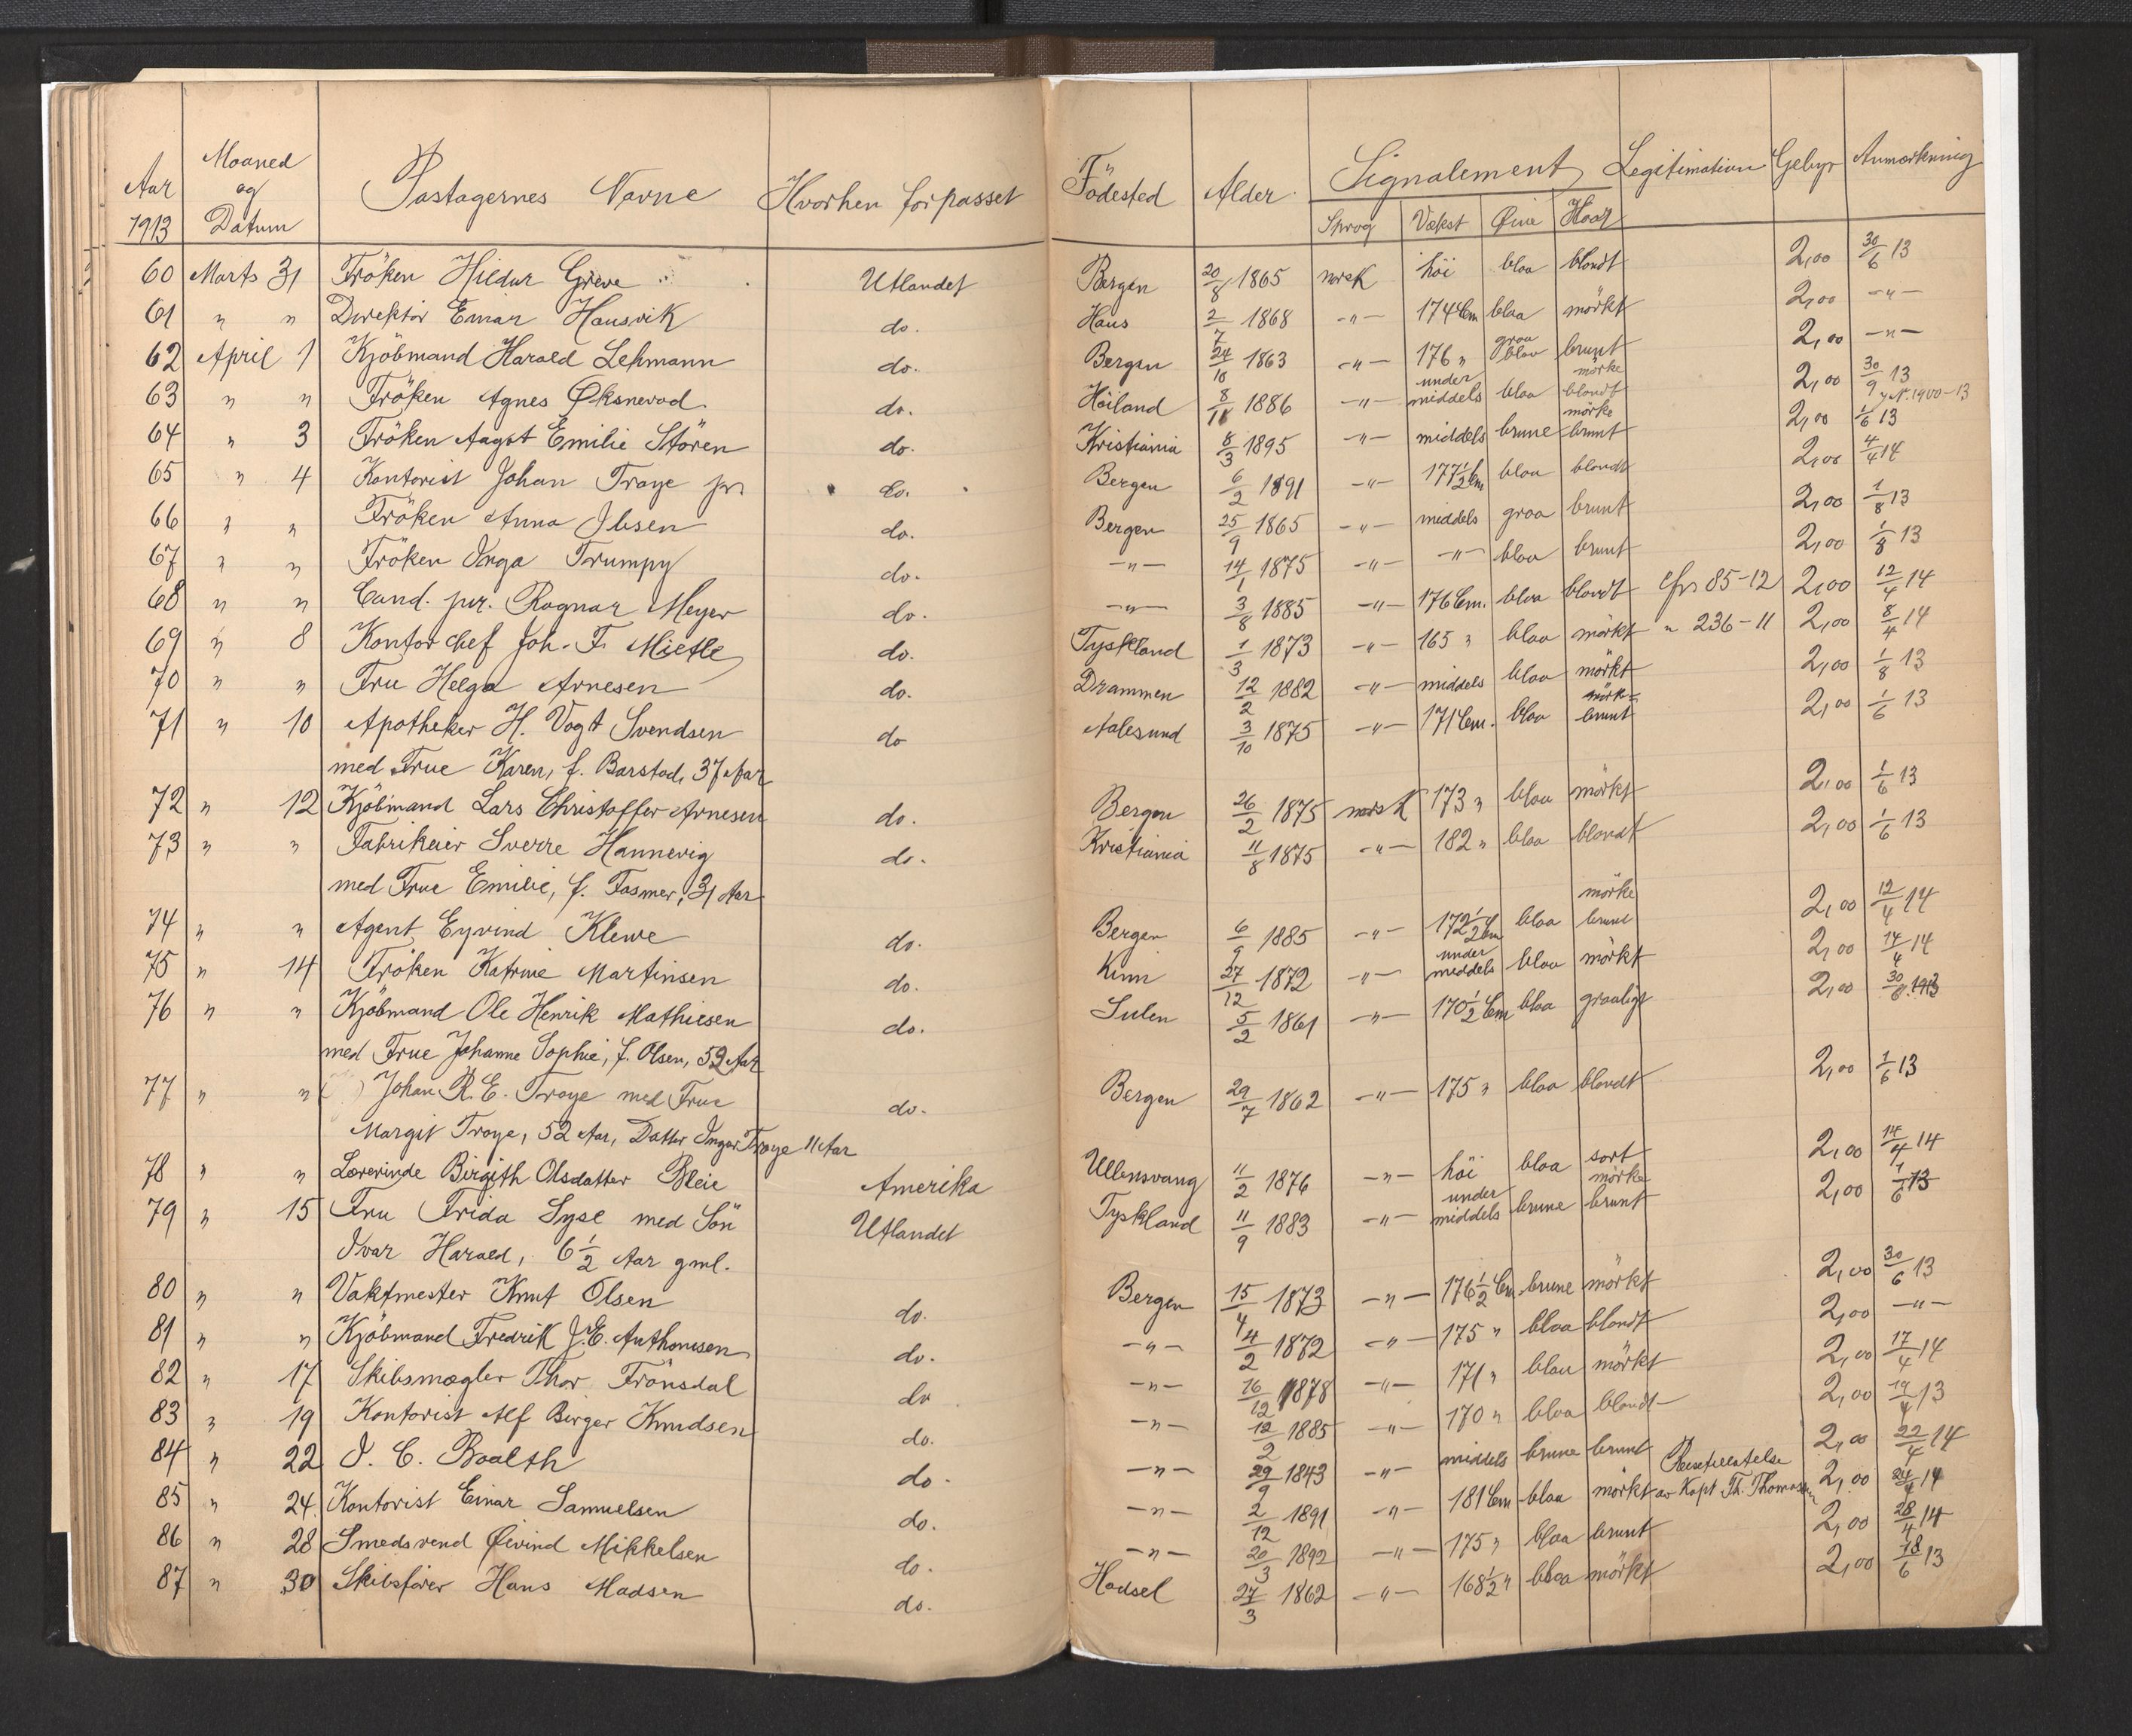 Aar 1913 Moaned og Datum Pastagernes Navne Hvorhen forpasset Födested Alder Signalement Legitimation Gebyr Anmerkning
Sprog Vækst Øine Haar
60 Marts 31 Fröken Hildur Greve Utlandet Bergen 20/8 1865 norsk höi blaa blondt 2,00 30/6 13
61 " " Direktör Einar Hausvik do. Haus 2/7 1868 -"- 174 Cm blaa mörkt 2,00 -"-
62 April 1 Kjöbmand Harald Lehmann do. Bergen 24/10 1863 -"- 176 " graa blaa brunt 2,00 -"-
63 " " Fröken Agnes Øksnevad do. Höiland 8/11 1886 -"- under middels blaa mörke blondt 2,00 30/9 13
64 " 3 Fröken Aagot Emilie Stören do. Kristiania 8/3 1895 -"- middels brune mörke brunt 2,00 1/6 13
65 " 4 Kontorist Johan Troye jr. do. Bergen 6/2 1891 -"- 177 1/2 Cm blaa blondt 2,00 4/4 14
66 " " Fröken Anna Ibsen do. Bergen 25/9 1865 -"- middels graa brunt 2,00 1/8 13
67 " " Fröken Inga Trumpy do. -"- 14/1 1875 -"- -"- blaa brunt 2,00 1/8 13
68 " " Cand. jur. Ragnar Meyer do. -"- 3/8 1885 -"- 176 Cm. blaa blondt cfr 85-12 2,00 12/4 14
69 " 8 Kontorchef Joh. F. Mietle do. Tyskland 1/3 1873 -"- 165 " blaa mörkt " 236-11 2,00 8/4 14
70 " " Fru Helga Arnesen do. Drammen 12/2 1882 -"- middels blaa mörkt 2,00 1/8 13
71 " 10 Apotheker H. Vogt Svendsen do Aalesund 3/10 1875 -"- 171 Cm. blaa mörke brunt 2,00 1/6 13
med Frue Karen, f. Barstad, 37 Aar
72 " 12 Kjöbmand Lars Christoffer Arnesen do. Bergen 26/2 1875 norsk 173 " blaa mörkt 2,00 1/6 13
73 " " Fabrikeier Sverre Hannevig do. Kristiania 11/8 1875 -"- 182 " blaa blondt 2,00 1/6 13
med Frue Emilie, f. Fasmer, 31 Aar
74 " " Agent Eyvind Klewe do. Bergen 6/9 1885 -"- 172 1/2 Cm blaa mörke brunt 2,00 12/4 14
75 " 14 Fröken Katrine Martinsen do. Kinn 27/12 1872 -"- under middels blaa mörkt 2,00 14/4 14
76 " " Kjöbmand Ole Henrik Mathiesen do. Sulen 5/2 1861 -"- 170 1/2 Cm blaa graaligt 2,00 30/6 1913
med Frue Johanne Sophie, f. Olsen, 52 Aar
77 " " Johan R. E. Troye med Frue do. Bergen 29/7 1862 -"- 175 " blaa blondt 2,00 1/6 13
Margit Troye, 52 Aar, Datter Ingar Troye 11 Aar
78 " " Lærerinde Birgith Olsdatter Bleie Amerika Ullensvang 11/2 1876 -"- höi blaa sort 2,00 14/4 14
79 " 15 Fru Frida Lyse med Sön Utlandet Tyskland 11/9 1883 -"- under middels brune mörke brunt 2,00 1/6 13
Ivar Harald, 6 1/2 Aar gml.
80 " " Vaktmester Knut Olsen do. Bergen 15/4 1873 -"- 176 1/2 Cm brune mörkt 2,00 30/6 13
81 " " Kjöbmand Fredrik J. E. Anthonisen do. -"- 4/2 1872 -"- 175 " blaa blondt 2,00 -"-
82 " 17 Skibsmægler Thor Frönsdal do -"- 16/12 1878 -"- 171 " blaa mörkt 2,00 17/4 14
83 " 19 Kontorist Alf Birger Knudsen do. -"- 12/2 1885 -"- 170 " blaa blondt 2,00 19/4 13
84 " 22 I. C. Baalth do. -"- 29/9 1843 -"- middels brune brunt 2,00 22/4 14
85 " 24. Kontorist Einar Samuelsen do. -"- 2/12 1891 -"- 181 Cm blaa mörkt Reisetillatelse av Kapt Th. Thomassen 2,00 24/4 14
86 " 28 Smedsvend Øivind Mikkelsen do. -"- 20/3 1892 -"- 175 " blaa brunt 2,00 28/4 14
87 " 30 Skibsförer Hans Madsen do. Hadsel 27/3 1862 -"- 168 1/2 " blaa mörkt 2,00 18/6 13